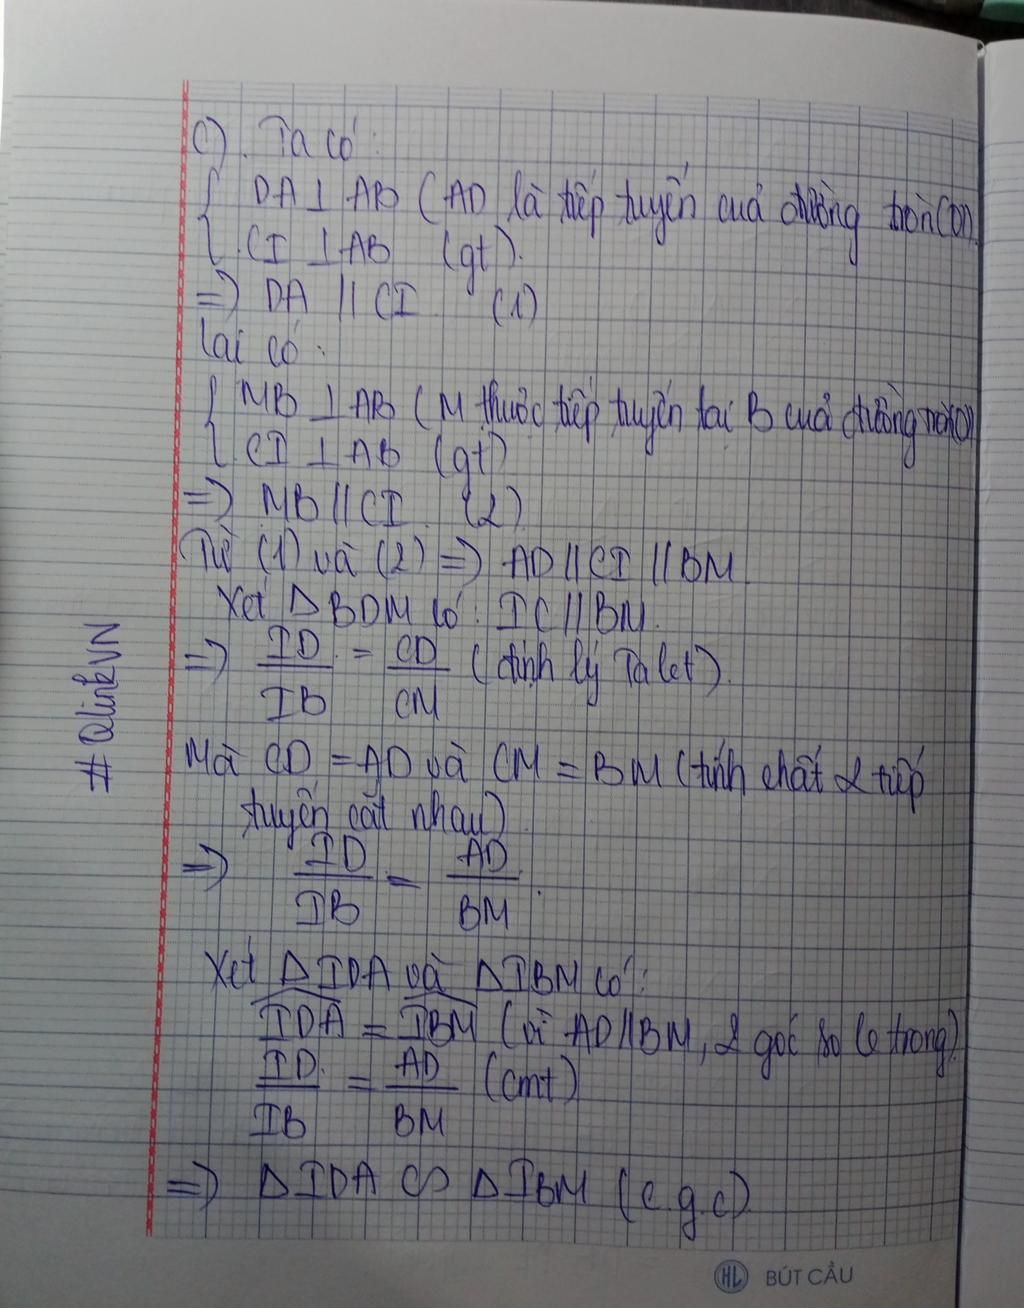 c). Ta có:
DA ⊥ AB (AD là tiếp tuyến của đường tròn (O))
CI ⊥ AB (gt).
=> DA // CI (1)
Lại có:
MB ⊥ AB (M thuộc tiếp tuyến tại B của đường tròn (O))
CI ⊥ AB (gt)
=> MB // CI (2)
Từ (1) và (2) => AD // CI // BM
Xét ΔBDM có: IC // BM.
=> ID/IB = CD/CM (định lý Talet).
Mà CD = AD và CM = BM (tính chất 2 tiếp
tuyến cắt nhau)
=> ID/IB = AD/BM.
Xét ΔIDA và ΔIBM có:
\widehat{IDA} = \widehat{IBM} (vì AD // BM, 2 góc so le trong)
ID/IB = AD/BM (cmt)
=> ΔIDA ∽ ΔIBM (c.g.c)
#QlinkVN
HL BÚT CẦU